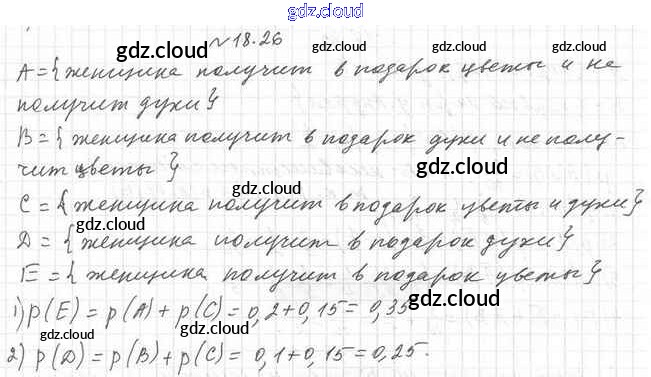 gdz.cloud
№ 18.26
gdz.cloud gdz.cloud gdz.cloud
A = { женщина получит в подарок цветы и не
получит духи }
gdz.cloud
B = { женщина получит в подарок духи и не полу-
чит цветы }
gdz.cloud
gdz.cloud
C = { женщина получит в подарок цветы и духи }
gdz.cloud gdz.cloud
D = { женщина получит в подарок духи }
gdz.cloud
E = { женщина получит в подарок цветы }
1) p(E) = p(A) + p(C) = 0,2 + 0,15 = 0,35
gdz.cloud
gdz.cloud
2) p(D) = p(B) + p(C) = 0,1 + 0,15 = 0,25.
gdz.cloud